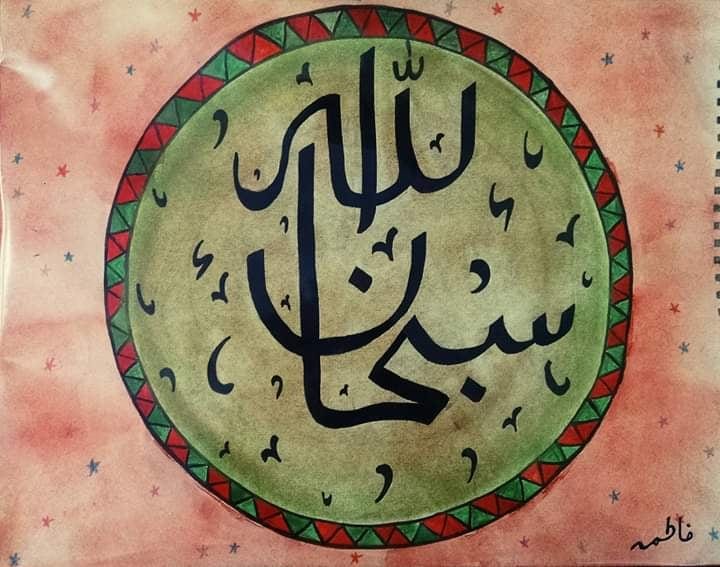 سبحان
الله
فاطمه